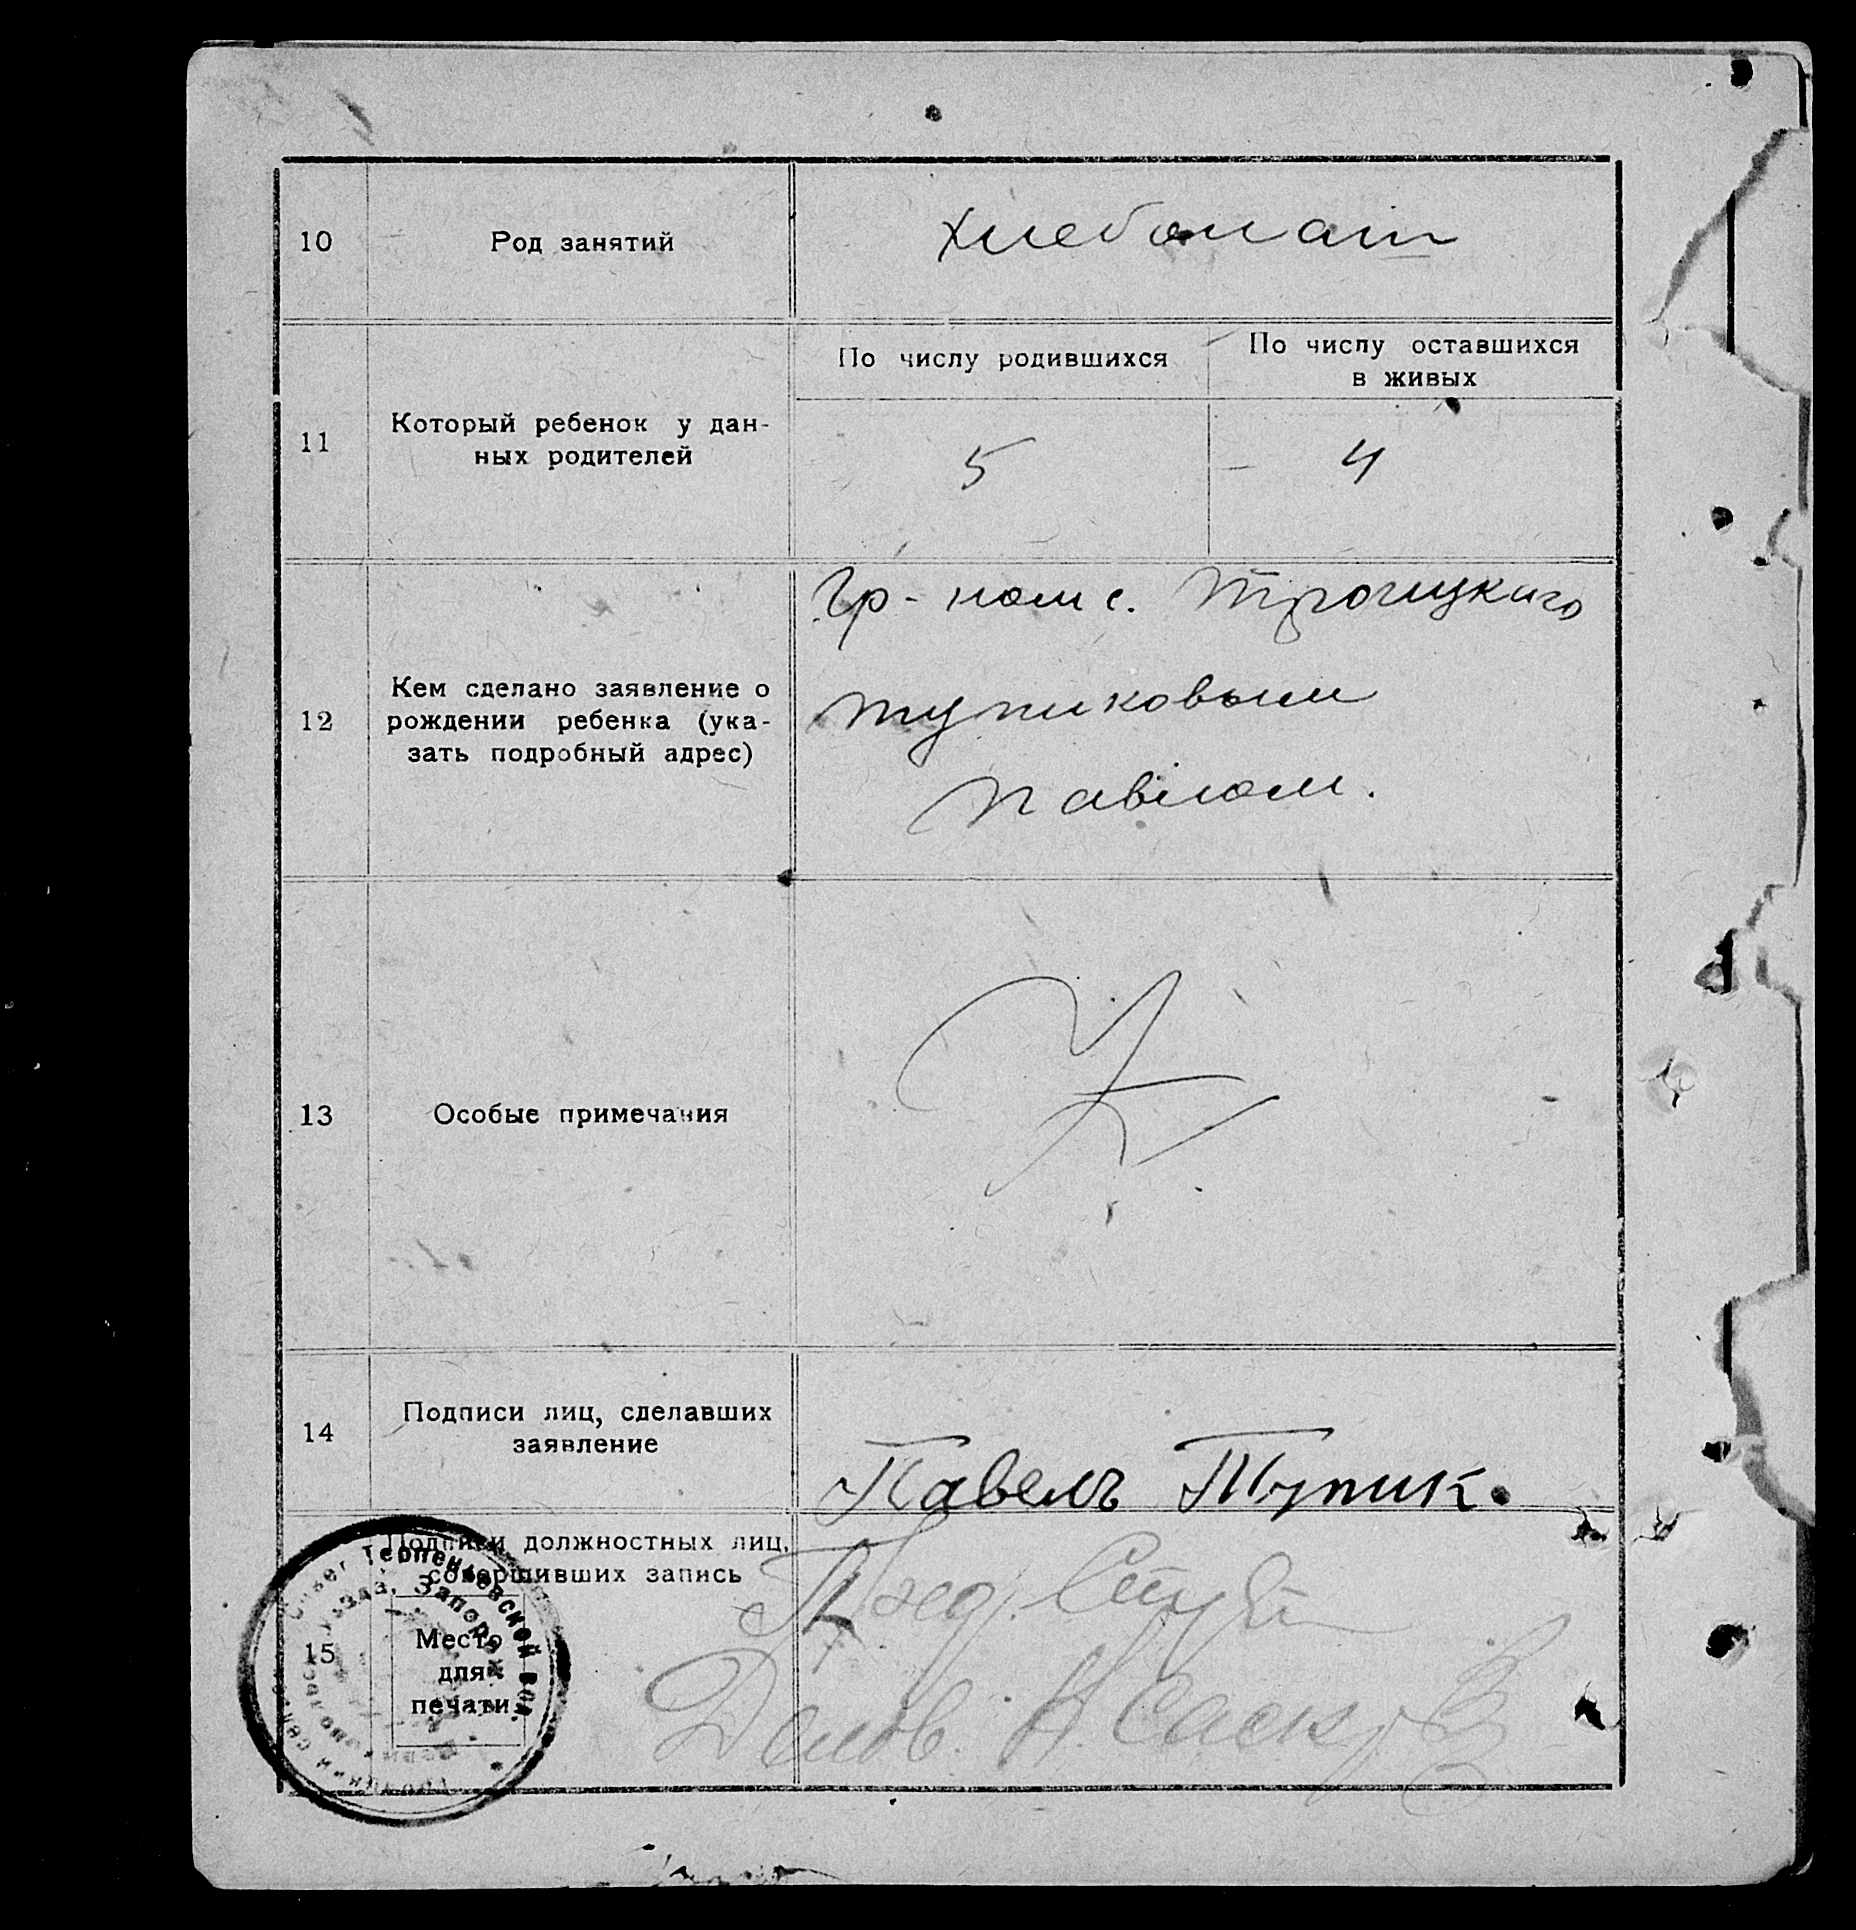 10
Род занятий
хлебопаш
11
Который ребенок у дан-
ных родителей
По числу родившихся
По числу оставшихся
в живых
5
4
12
Кем сделано заявление о
рождении ребенка (ука-
зать подробный адрес)
Гр-ном с. Троицкаго
Тупиковым
Павлом.
13
Особые примечания
14
Подписи лиц, сделавших
заявление
Павелъ Тупик.
15
Подписи должностных лиц,
совершивших запись
Место
для
печати
Терпеньевской вол.
Пред.
Делов.